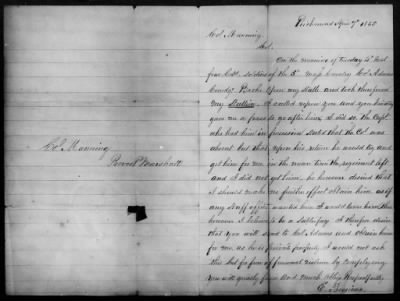 Richmond Apr 7th 1865
Col Manning
Col.
On the morning of Tuesday 4th Inst
four Cold. soldiers of the 5th Mass Cavalry Col Adams
Comdg. Broke open my stable and took therefrom
my Stallion. I called upon you and you kindly
gave me a pass to go after him. I did so. The Capt
who had him in possession stated that the Col was
absent but that upon his return he would try and
get him for me, in the mean time the regiment left
and I did not get him, he however desired that
I should make no further effort obtain him as if
any Staff officer wanted him he would have him then
however I believe to be a subterfuge I therefore desire
that you will send to Col Adams and obtain him
for me, as he is private property, I would not ask
this but for fear of personal violence by complying
you will greatly favor and much oblige Respectfully
Col Manning
Provost Marshall